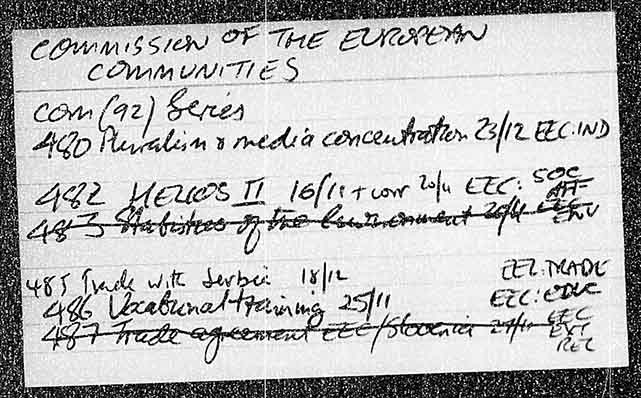 COMMISSION OF THE EUROPEAN
COMMUNITIES
COM (92) Series
480 Pluralism & media concentration 23/12 EEC:IND
482 HELIOS II 16/11 + corr 20/11 EEC: SOC AFF
483 Statistics of the Environment 26/11 EEC ENV
485 Trade with Serbia 18/12 EEC:TRADE
486 Vocational training 25/11 EEC:EDUC
487 Trade agreement EEC/Slovenia 27/11 EEC EXT REL